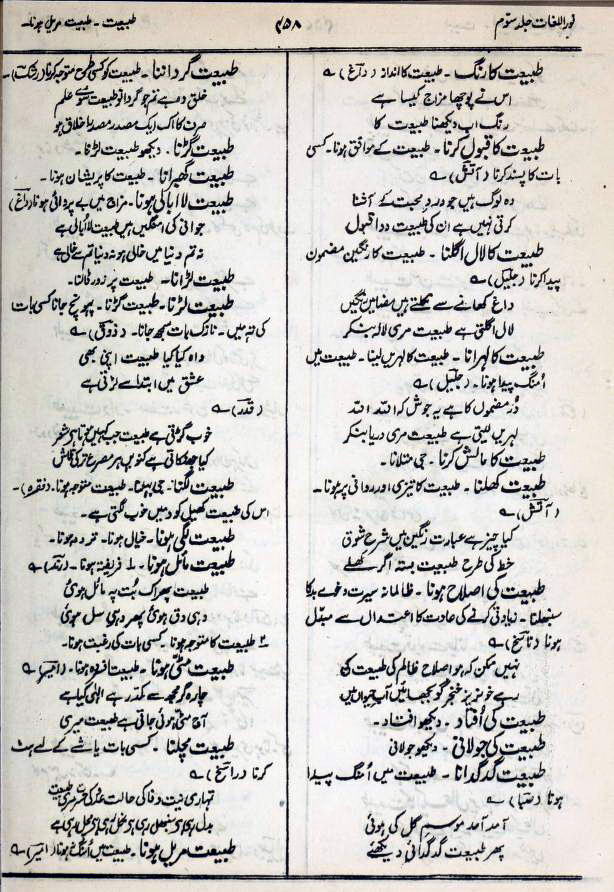 نور اللغات جلد سوم
۴۵۸
طبیعت - طبیعت مریل ہونا
طبیعت کا رنگ - طبیعت کا انداز (داغ) ؎
اس نے پوچھا مزاج کیسا ہے
رنگ اب دیکھنا طبیعت کا
طبیعت کا قبول کرنا - طبیعت کے موافق ہونا - کسی
بات کا پسند کرنا (آتش) ؎
وہ لوگ ہیں جو درد محبت کے آشنا
کرتی نہیں ہے ان کی طبیعت دوا قبول
طبیعت کا لال اگلنا - طبیعت کا رنگین مضمون
پیدا کرنا (جلیل) ؎
داغ کھانے سے نکلتے ہیں مضامین رنگیں
لال اگلتی ہے طبیعت مری لالہ بنکر
طبیعت کا لہرانا - طبیعت کا لہریں لینا - طبیعت میں
اُمنگ پیدا ہونا - (جلیل) ؎
دُر مضموں کا ہے یہ جوش کہ اللہ اللہ
لہریں لیتی ہے طبیعت مری دریا بنکر
طبیعت کا مالش کرنا - جی متلانا -
طبیعت کھلنا - طبیعت کا تیزی اور روانی پر ہونا -
(آتش) ؎
کیا چیز ہے عبارت رنگیں میں شرح شوق
خط کی طرح طبیعت بستہ اگر کھلے
طبیعت کی اصلاح ہونا - ظالمانہ سیرت دعوے بدکا
سنبھلنا - زیادتی کرنے کی عادت کا اعتدال سے مبدّل
ہونا (ناسخ) ؎
نہیں ممکن کہ ہو اصلاح ظالم کی طبیعت کی
رہے خونریز خنجر گو بجھائیں آب حیواں میں
طبیعت کی اُفتاد - دیکھو افتاد -
طبیعت کی جولانی - دیکھو جولانی
طبیعت گدگدانا - طبیعت میں اُمنگ پیدا
ہونا (صبا) ؎
آمد آمد موسم گل کی ہوئی
پھر طبیعت گدگدائی دیکھئے
طبیعت گرداننا - طبیعت کو کسی طرح متوجہ کرنا (رشک) ؎
خلق وہ ہے تم جو گردانو طبیعت سوے علم
صرف کا اک ایک مصدر مصدر اخلاق ہو
طبیعت گڑنا - دیکھو طبیعت لڑنا -
طبیعت گھبرانا - طبیعت کا پریشان ہونا -
طبیعت لاابالی ہونا - مزاج میں بے پروائی ہونا (داغ)
جوانی کی امنگیں ہیں طبیعت لا ابالی ہے
نہ تم دنیا میں خالی ہو نہ دنیا تم سے خالی ہے
طبیعت لڑانا - طبیعت پر زور ڈالنا -
طبیعت لڑنا - طبیعت گڑنا - پہونچ جانا کسی بات
کی تہ میں - نازک بات سمجھ جانا - (ذوق) ؎
واہ کیا کیا طبیعت اپنی بھی
عشق میں ابتدا سے لڑتی ہے
(قدر) ؎
خوب لڑتی ہے طبیعت جب کہیں ہوتا ہی شعر
کیا جھنکاتی ہے کنویں ہر مصرع تر کی تلاش
طبیعت لگنا - جی بہلنا - طبیعت متوجہ ہونا - (فقرہ) -
اس کی طبیعت کھیل کود میں خوب لگتی ہے -
طبیعت لگی ہونا - خیال ہونا - تردد ہونا -
طبیعت مائل ہونا - ۱ - فریفتہ ہونا - (رند) ؎
طبیعت پھر اک بُت پہ مائل ہوئی
وہی دق ہوئی پھر وہی سل ہوئی
۲ طبیعت کا متوجہ ہونا - کسی بات کی رغبت ہونا -
طبیعت مٹی ہونا - طبیعت افسردہ ہونا - (امیر) ؎
چارہ گر مجھ سے مکدر ہے الٰہی کیا ہے
آج مٹی ہوئی جاتی ہے طبیعت میری
طبیعت مچلنا - کسی بات یا شے کے لیے ہٹ
کرنا (راسخ) ؎
تمہاری نیت وفا کی حالت عدو کی حسرت مری طبیعت
بدل رہی ہے سنبھل رہی ہے نکل رہی ہے مچل رہی ہے
طبیعت مریل ہونا - طبیعت میں اُمنگ نہ ہونا (امیر) ؎